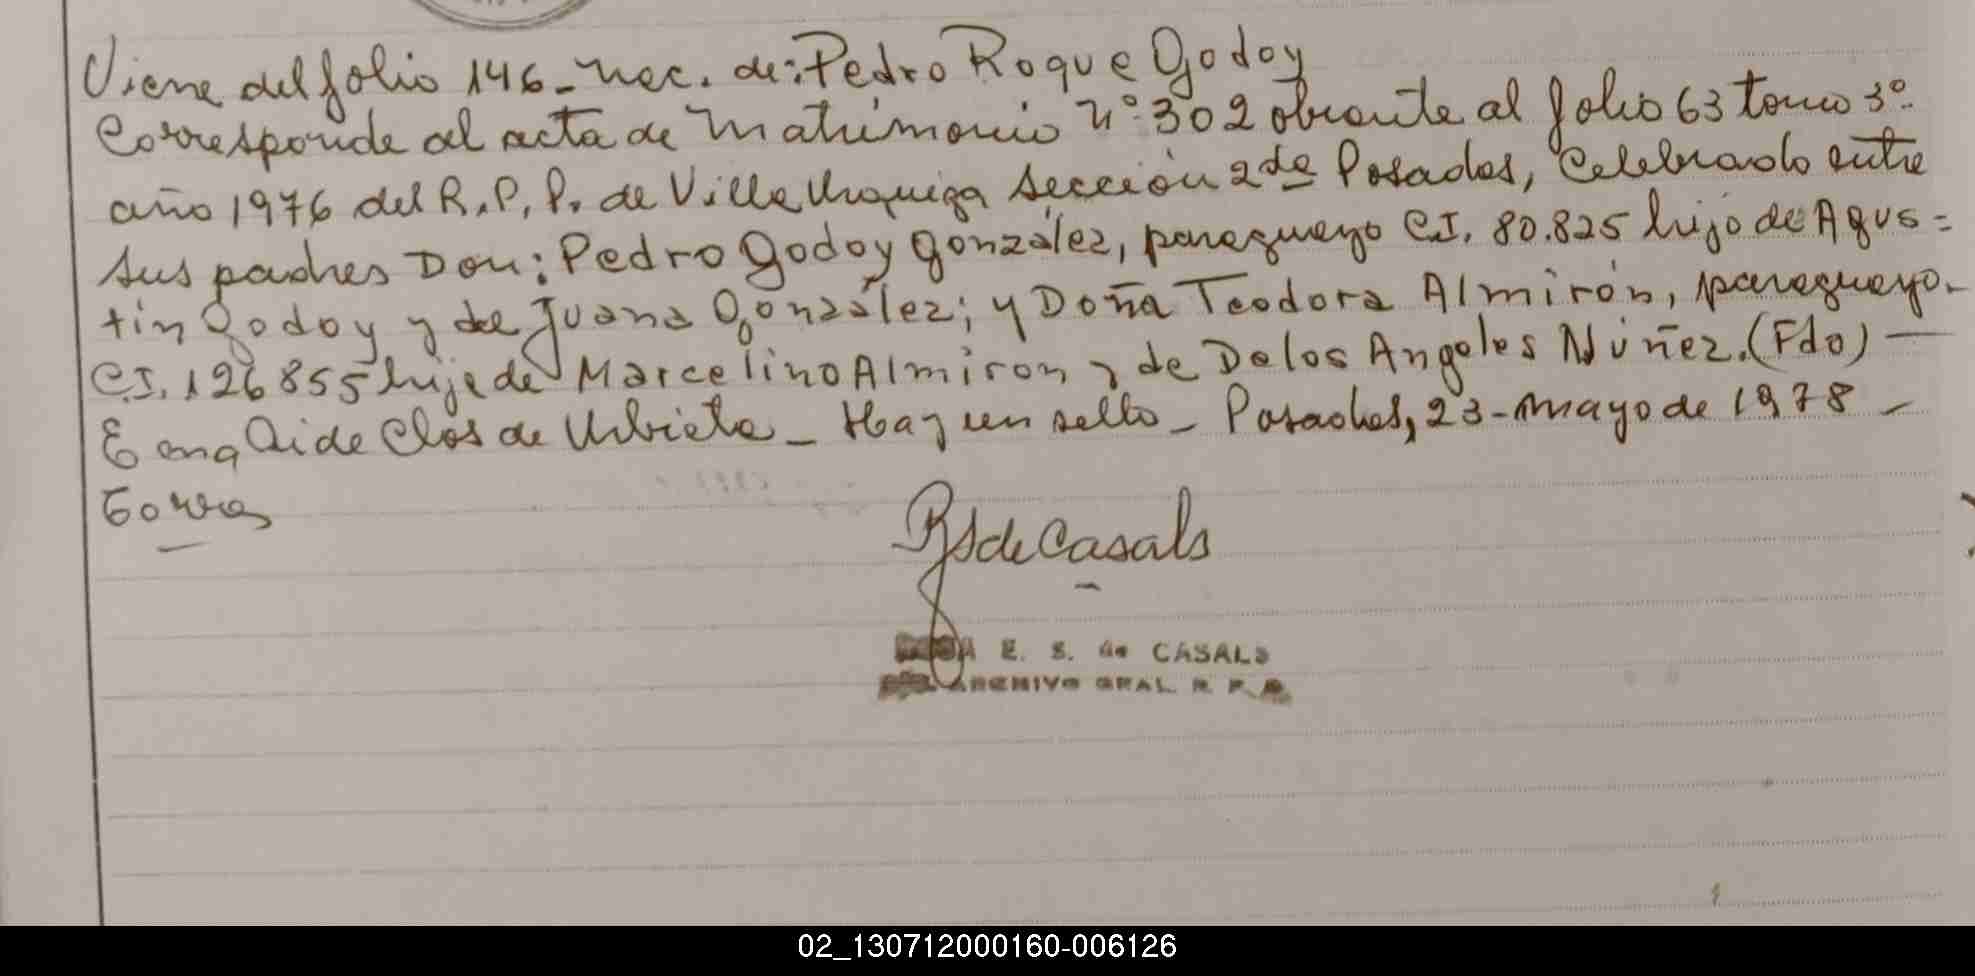 Viene del folio 146 - nac. de: Pedro Roque Godoy
Corresponde al acta de Matrimonio N° 302 obrante al folio 63 tomo 3°.
año 1976 del R.P.P. de Villa Urquiza Sección 2da Posadas, Celebrado entre
sus padres Don: Pedro Godoy González, paraguayo C.I. 80.825 hijo de Agus=
tín Godoy y de Juana González; y Doña Teodora Almirón, paraguaya.
C.I. 126855 hija de Marcelino Almiron y de Delos Angeles Núñez. (Fdo) —
Ema Aide Clos de Urbieta - Hay un sello - Posadas, 23 - mayo de 1978 -
de Casals
E. S. de CASALS
ARCHIVO GRAL. R. P.
02_130712000160-006126